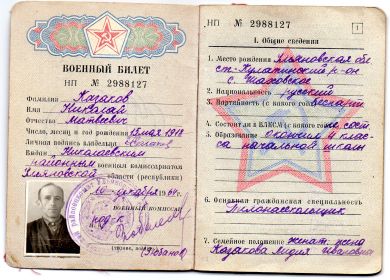 ВОЕННЫЙ БИЛЕТ
НП № 2988127
Фамилия Казаков
Имя Николай
Отчество Матвеевич
Число, месяц и год рождения 13 мая 1918
Личная подпись владельца
Выдан Николаевским
районным военным комиссариатом
Ульяновской области (республики)
10 декабря 1964 г.
ВОЕННЫЙ КОМИССАР
(звание, подпись)
НП № 2988127
1
I. Общие сведения
1. Место рождения Ульяновская обл
ст-Кулаткинский р-он
с.
2. Национальность русский
3. Партийность (с какого года) беспартий
4. Состоит ли в ВЛКСМ с какого года не сост
5. Образование окончил 4 клас-
са начальной школы
6. Основная гражданская специальность
7. Семейное положение женат: жена
Казакова Лидия Ивановна